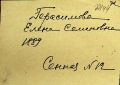 Герасимова
Елена Семеновна
1889
Сенная N 12